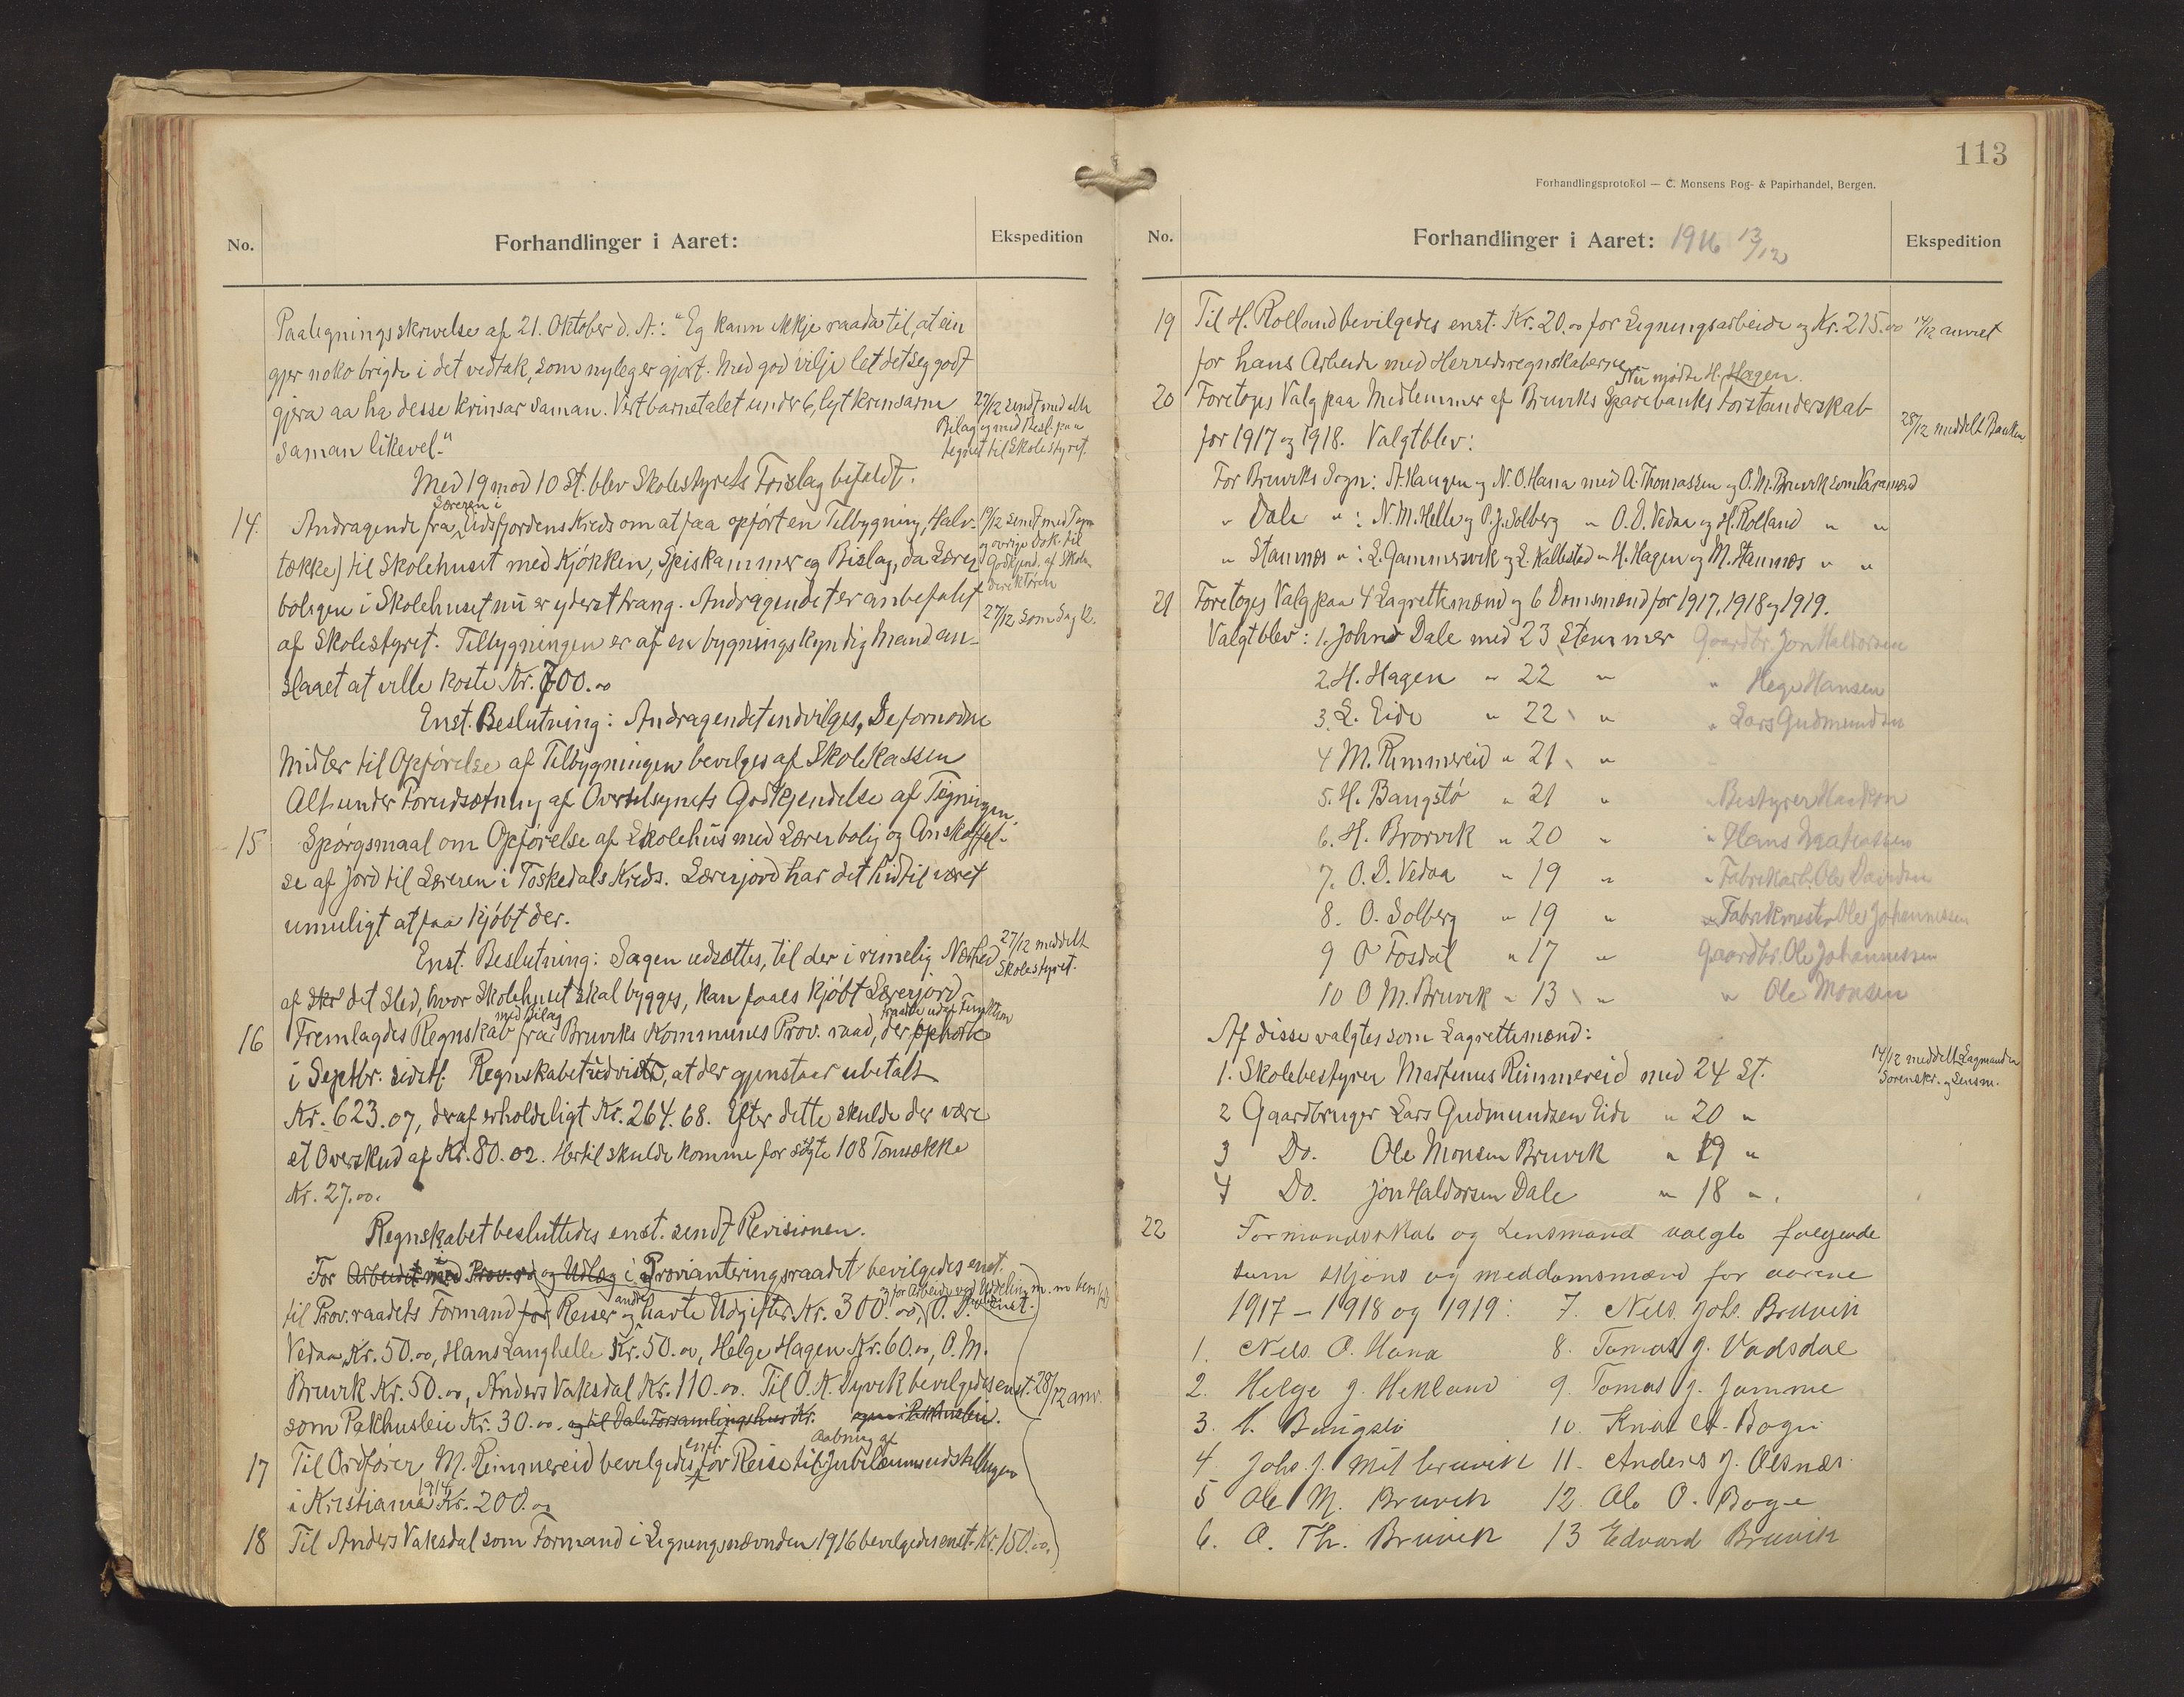 No.
Forhandlinger i Aaret:
Ekspedition
Paategningsskrivelse af 21. Oktober d. A.: "Eg kann ikkje raada til, at ein
gjer noko brigde i det vedtak, som nyleg er gjort. Med god vilje let det seg godt
gjera aa ha desse krinsar saman. Vert barnetalet under 6, lyt krinsarne
saman likevel."
27/12 sendt med alle
Bilag og med Besl. paa
tegnet til Skolestyret.
Med 19 mod 10 St. blev Skolestyrets Forslag bifaldt.
14. Andragende fra Læreren i Eidsfjordens Kreds om at faa opført en Tilbygning, Halv-
tække) til Skolehuset med Kjøkken, Spiskammer og Bislag, da Lærer-
boligen i Skolehuset nu er yderst trang. Andragendet er anbefalet
af Skolestyret. Tilbygningen er af en bygningskyndig Mand an-
slaaet at ville koste Kr. 700.00
19/12 sendt med Tegn
og øvrige Dok. til
Godkjend. af Skole-
direktøren
27/12 som Sag 12.
Enst. Beslutning: Andragendet indvilges. De fornødne
Midler til Opførelse af Tilbygningen bevilges af Skolekassen
Alt under Forudsætning af Overtilsynets Godkjendelse af Tegningen.
15 Spørgsmaal om Opførelse af Skolehus med Lærerbolig og Anskaffel-
se af Jord til Læreren i Toskedals Kreds. Lærerjord har det hidtil været
umuligt at faa kjøbt der.
Enst. Beslutning: Sagen udsættes, til der i rimelig Nærhed
af det Sted, hvor Skolehuset skal bygges, kan faaes kjøbt Lærerjord.
27/12 meddelt
Skolestyret.
16 Fremlagdes Regnskab med Bilag fra Bruviks Kommunes Prov. raad, der traadte ud af Funktion ophørte
i Septbr. sidstl. Regnskabet udviste, at der gjenstaar ubetalt
Kr. 623.07, deraf erholdeligt Kr. 264.68. Efter dette skulde der være
et Overskud af Kr. 80.02. Hertil skulde komme for solgte 108 Tomsække
Kr. 27.00.
Regnskabet besluttedes enst. sendt Revisionen.
For Arbeidet med Prov. rd og Udlæg i Provianteringsraadet bevilgedes enst.
til Prov. raadets Formand for Reiser og andre havte Udgifter og for Arbeide ved Uddeling m. m. Kr. 300.00, O. D.
Vedaa, Kr. 50.00, Hans Langhelle Kr. 50.00, Helge Hagen Kr. 60.00, O. M.
Bruvik Kr. 50.00, Anders Vaksdal Kr. 110.00. Til O. K. Dyvik bevilgedes enst. 28/12 anv.
som Pakhusleie Kr. 30.00. og til Dale Forsamlingshus Kr.
17 Til Ordfører M. Rimmereid bevilgedes enst. for Reise til Aabning af Jubilæumsudstillingen
i Kristiania 1914 Kr. 200.00
18 Til Anders Vaksdal som Formand i Ligningsnævnden 1916 bevilgedes enst. Kr. 150.00.
113
Forhandlingsprotokol — C. Monsens Bog- & Papirhandel, Bergen.
No.
Forhandlinger i Aaret: 1916 13/12
Ekspedition
19 Til H. Rolland bevilgedes enst. Kr. 20.00 for Ligningsarbeide og Kr. 215.00
14/12 anvist
for hans Arbeide med Herredsregnskaberne. Nu mødte H. Hagen.
20 Foretoges Valg paa Medlemmer af Bruviks Sparebanks Forstanderskab
for 1917 og 1918. Valgt blev:
28/12 meddelt Banken
For Bruviks Sogn: A. Haugen og N. O. Hana med A. Thomassen og O. M. Bruvik som Varamænd
" Dale " : N. M. Helle og O. J. Solberg " O. D. Vedaa og H. Rolland " "
" Stamnes " : L. Gammersvik og L. Kallestad " H. Hagen og M. Stamnes " "
21 Foretoges Valg paa 4 Lagrettemænd og 6 Domsmænd for 1917, 1918 og 1919.
Valgt blev: 1. Johns Dale med 23 Stemmer Gaardbr. Jon Haldorsen
2. H. Hagen " 22 " " Helge Hansen
3. L. Eide " 22 " " Lars Gudmundsen
4 M. Rimmereid " 21 "
5. H. Bangstø " 21 " " Bestyrer Haakon
6. H. Brorvik " 20 " " Hans
7. O. D. Vedaa " 19 " " Fabrikarb. Ole Davidsen
8. O. Solberg " 19 " " Fabrikmester Ole Johannessen
9 O Fosdal " 17 " Gaardbr. Ole Johannessen
10 O M. Bruvik " 13 " " Ole Monsen
Af disse valgtes som Lagrettemænd:
1. Skolebestyrer Martinus Rimmereid med 24 St.
14/12 meddelt Lagmanden
Sorenskr. og Lensm.
2 Gaardbruger Lars Gudmundsen Eide " 20 "
3 Do. Ole Monsen Bruvik " 19 "
4 Do. Jon Haldorsen Dale " 18 ".
22 Formandskab og Lensmand valgte følgende
som skjøns og meddomsmænd for aarene
1917 – 1918 og 1919: 7. Nils Johs. Bruvik
1. Nils O. Hana 8. Tomas J. Vadsdal
2. Helge J. Hekland 9. Tomas J. Jamne
3. H. Bangstø 10. Knut A. Boge
4 Johs. J. Mit Bruvik 11. Anders J. Olsnes.
5 Ole M. Bruvik 12. Ole O. Boge
6. O. Th. Bruvik 13 Edvard Bruvik